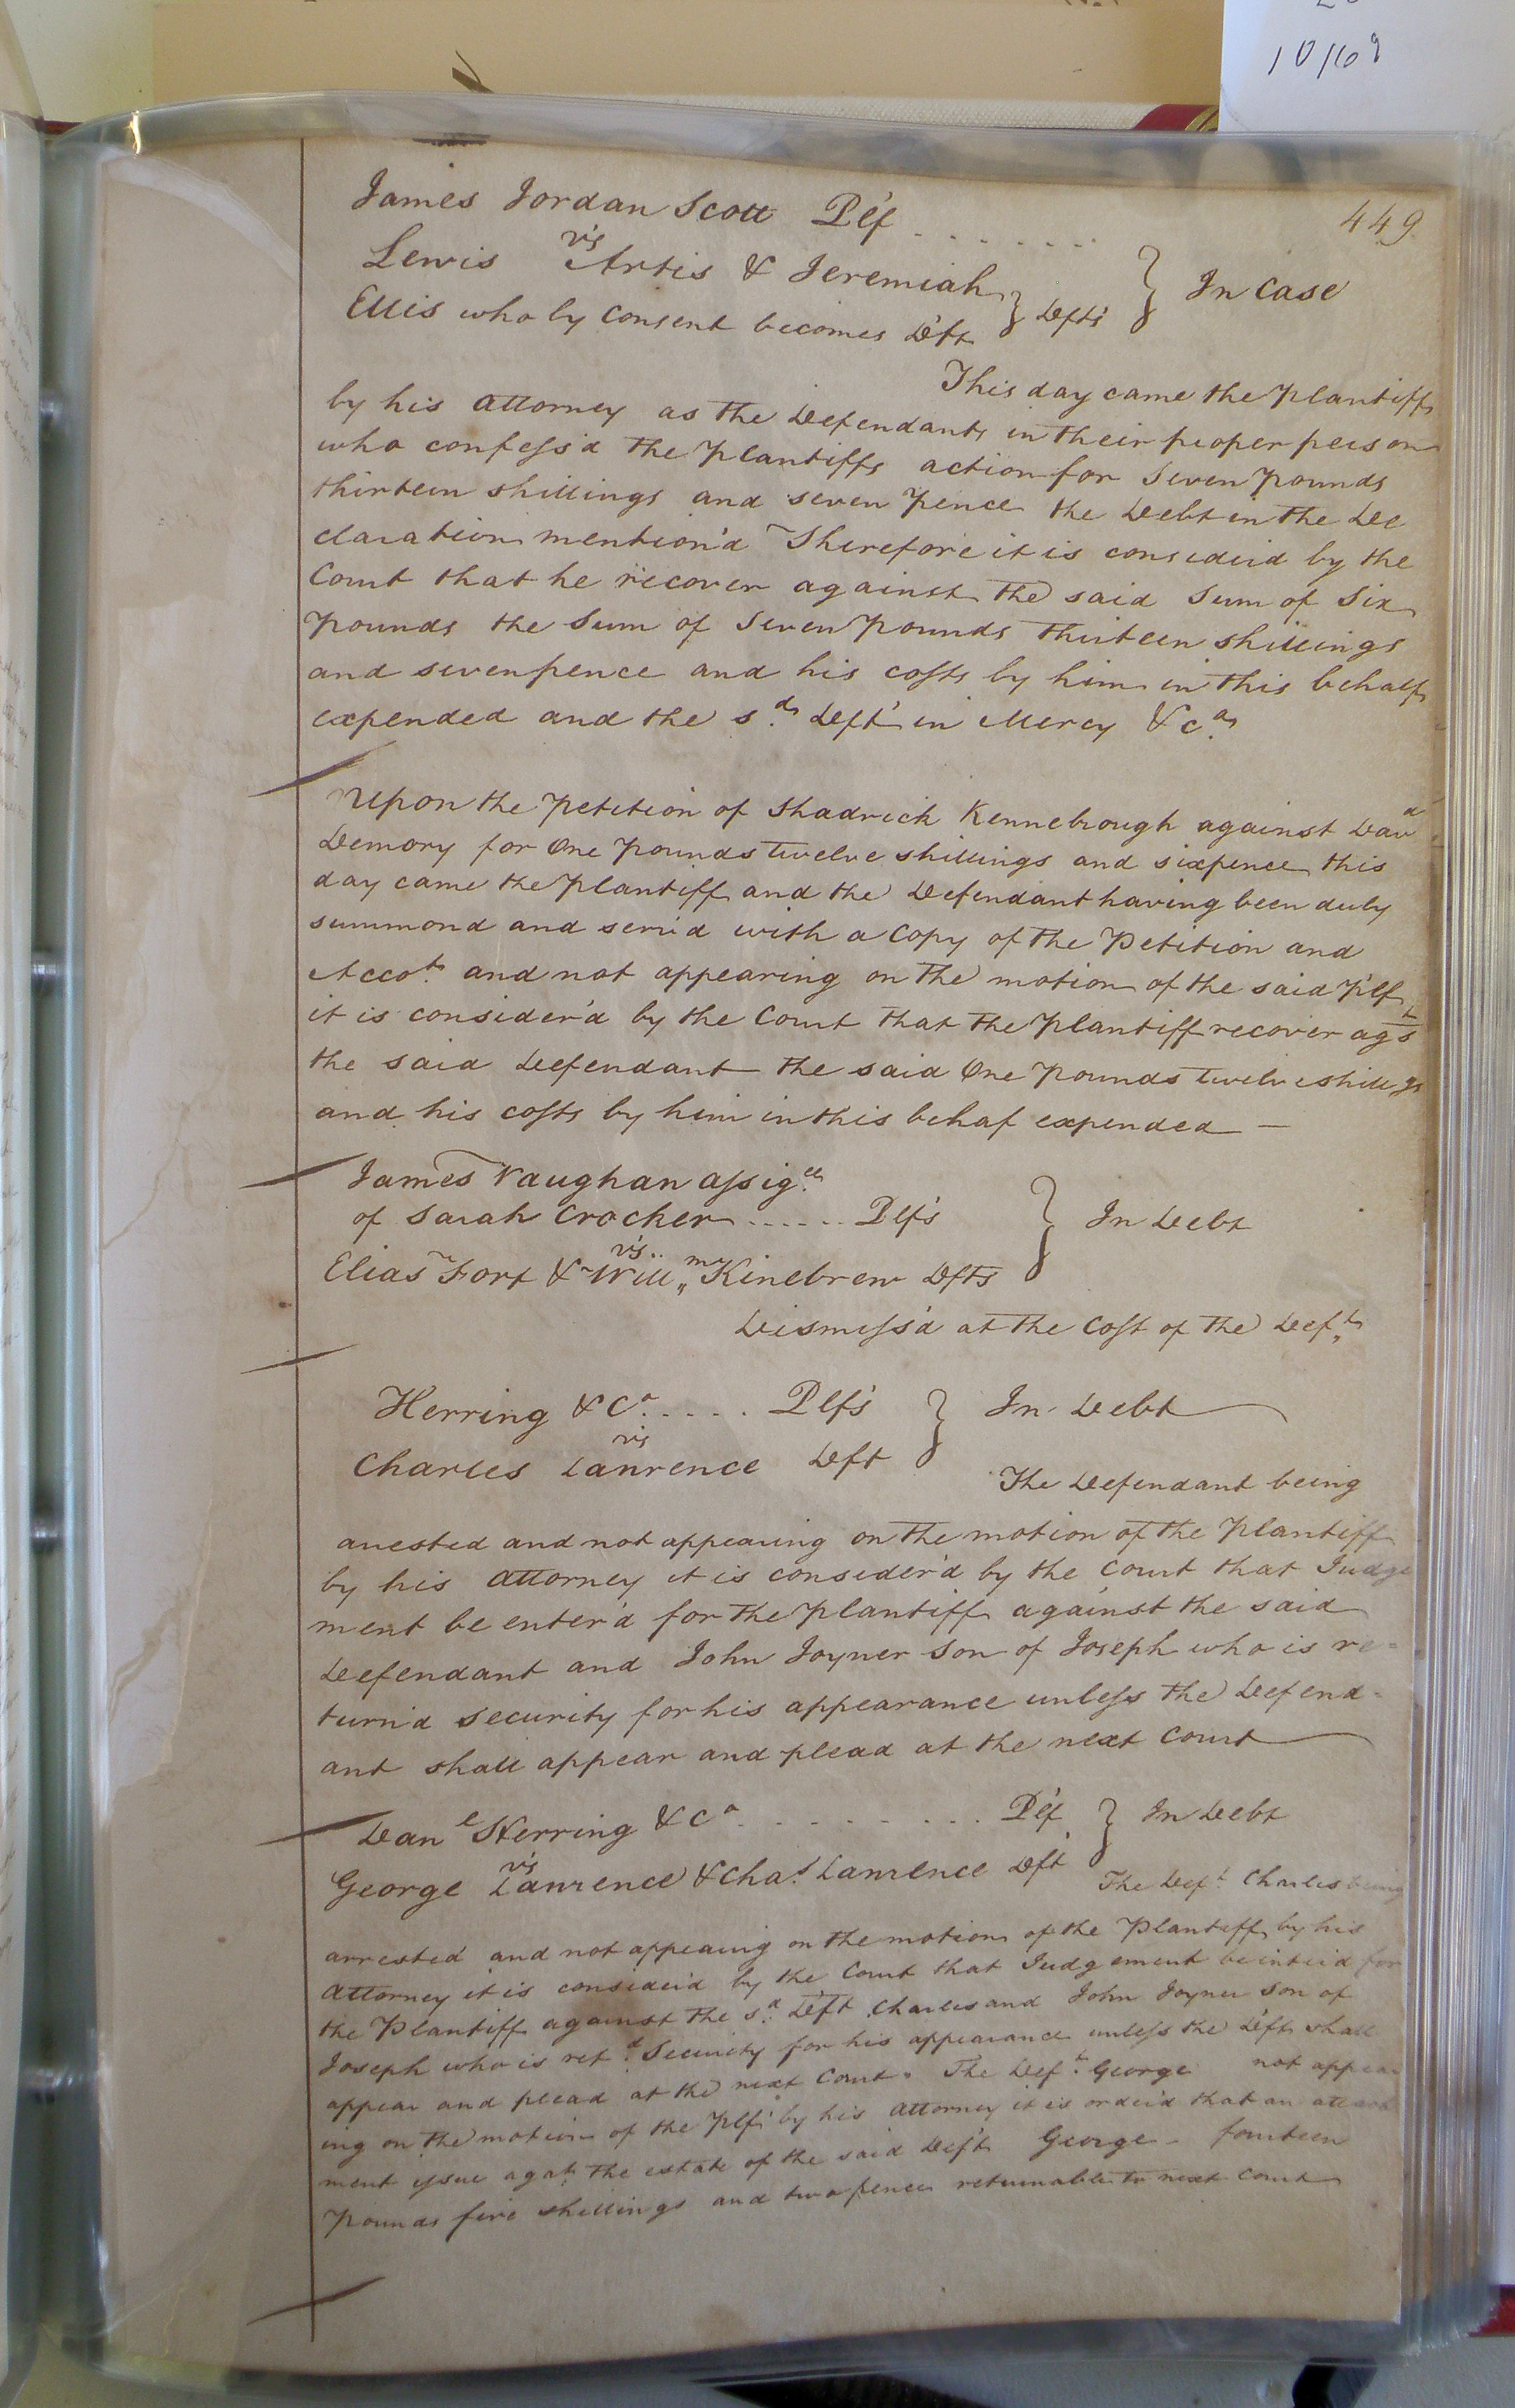 10/109
449
James Jordan Scott Plf ........
vs
Lewis Artis & Jeremiah } Defts } In Case
Ellis who by Consent becomes Deft
This day came the Plantiff
by his attorney as the Defendants in their proper person
who confess'd the Plantiffs action for Seven Pounds
thirteen shillings and seven Pence the Debt in the De
claration mention'd Therefore it is consider'd by the
Court that he recover against the said Sum of Six
Pounds the Sum of Seven Pounds thirteen shillings
and sevenpence and his costs by him in this behalf
expended and the sd. Deft in Mercy &ca.
Upon the Petition of Shadrick Kennebrough against Davd
Demory for One Pounds twelve shillings and sixpence this
day came the Plantiff and the Defendant having been duly
summond and serv'd with a Copy of the Petition and
Accot. and not appearing on the motion of the said Plf
it is consider'd by the Court that the Plantiff recover agst
the said Defendant the said One Pounds twelve shillgs
and his costs by him in this behaf expended —
James Vaughan assigee.
of Sarah Crocker ...... Plf's } In Debt
vs
Elias Fort & Willm Kinebrew Defts
Dismiss'd at the Cost of the Deft.
Herring & Co. .... Plf's } In Debt
vs
Charles Lawrence Deft
The Defendant being
arrested and not appearing on the motion of the Plantiff
by his attorney it is consider'd by the Court that Judge
ment be enter'd for the Plantiff against the said
Defendant and John Joyner Son of Joseph who is re=
turn'd security for his appearance unless the Defend-
ant shall appear and plead at the next Court
Danl Herring & Co. ......... Plf } In Debt
vs
George Lawrence & Chas. Lawrence Deft
The Deft. Charles being
arrested and not appearing on the motion of the Plantiff by his
attorney it is consider'd by the Court that Judgement be enter'd for
the Plantiff against the sd. Deft Charles and John Joyner Son of
Joseph who is retd. Security for his appearance unless the Deft shall
appear and plead at the next Court. The Deft. George not appear
ing on the motion of the Plf by his attorney it is order'd that an attach
ment issue agat the estate of the said Deft George - fourteen
Pounds five shillings and twopence returnable to next Court